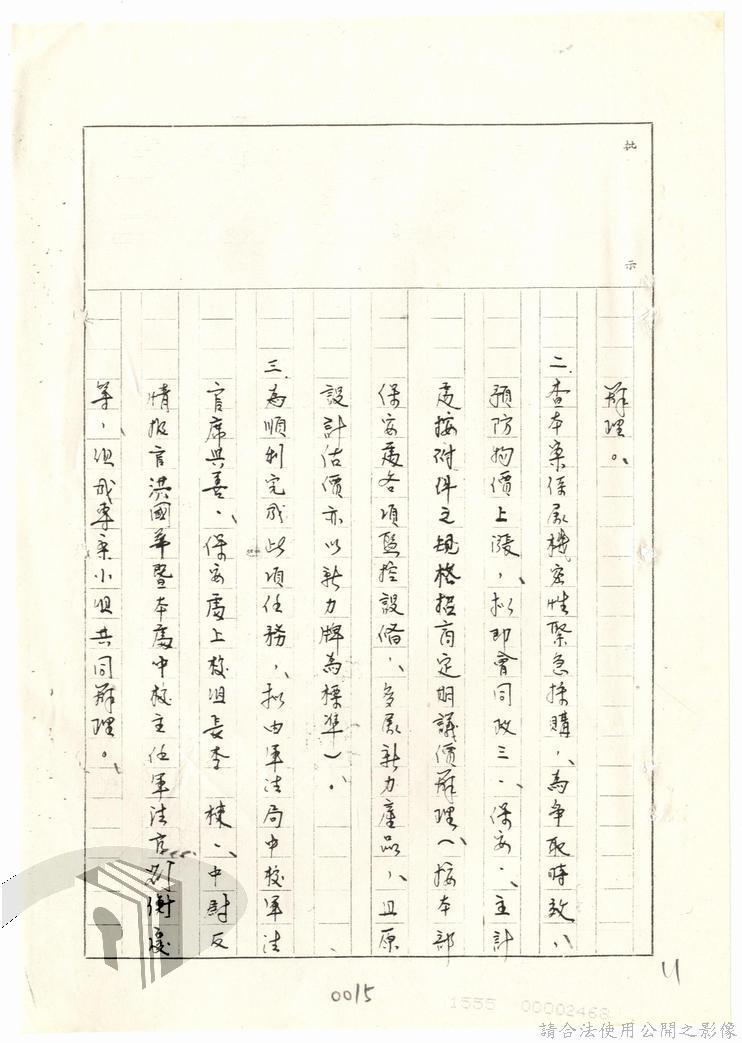 批示
辦理。
二.查本案係屬機密性緊急採購,為爭取時效,
預防物價上漲,擬即會同政三、保安、主計
處按附件之規格招商定期議價辦理(接本部
保安處各項監控設備,多屬新力產品,且原
設計估價亦以新力牌為標準)。
三.為順利完成此項任務,擬由軍法局中校軍法
官席與善、保安處上校組長李 棟、中尉反
情报官洪國華暨本處中校主任軍法官
等,組成專案小組共同辦理。
0015
1555 00002468
請合法使用公開之影像